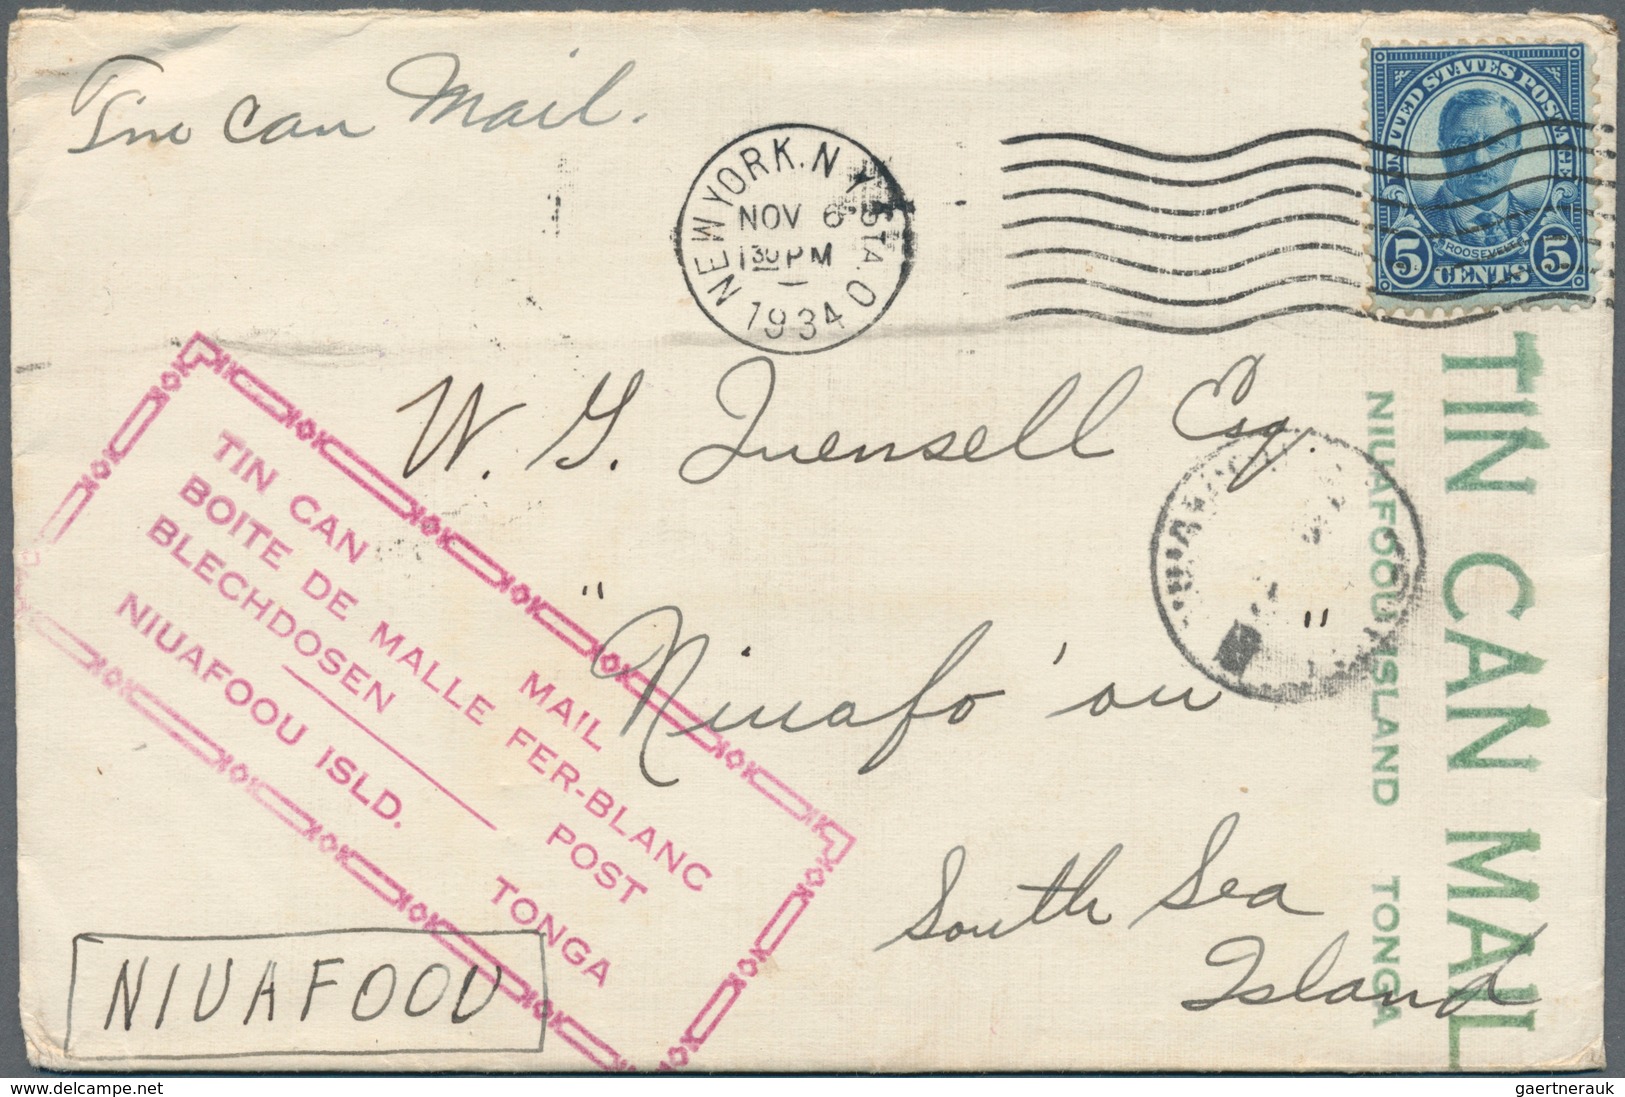 Tin Can Mail.
NEW YORK, N.Y.
STA. O
NOV 6
1 30 PM
1934
UNITED STATES POSTAGE
ROOSEVELT
5 CENTS 5
W. G. Quensell Esq.
"Niuafo'ou"
South Sea
Island
TIN CAN MAIL
BOITE DE MALLE FER-BLANC
BLECHDOSEN — POST
NIUAFOOU ISLD. TONGA
NIUAFOOU
TIN CAN MAIL
NIUAFOOU ISLAND TONGA
www.delcampe.net
gaertnerauk